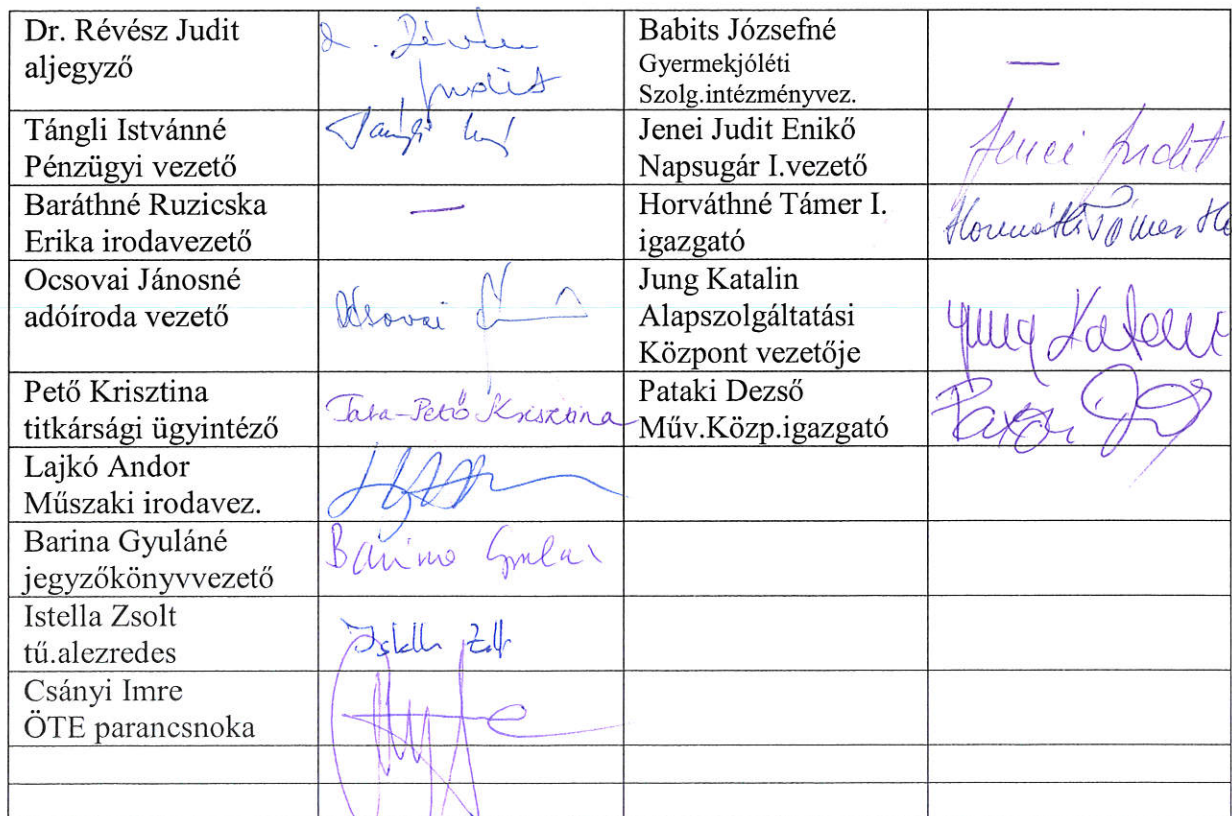 Dr. Révész Judit
aljegyző
Judit
Babits Józsefné
Gyermekjóléti
Szolg.intézményvez.
—
Tángli Istvánné
Pénzügyi vezető
Jenei Judit Enikő
Napsugár I.vezető
Jenei Judit
Baráthné Ruzicska
Erika irodavezető
—
Horváthné Támer I.
igazgató
Ocsovai Jánosné
adóíroda vezető
Ocsovai
Jung Katalin
Alapszolgáltatási
Központ vezetője
Jung Katalin
Pető Krisztina
titkársági ügyintéző
Tata-Pető Krisztina
Pataki Dezső
Műv.Közp.igazgató
Lajkó Andor
Műszaki irodavez.
Barina Gyuláné
jegyzőkönyvvezető
Istella Zsolt
tű.alezredes
Csányi Imre
ÖTE parancsnoka